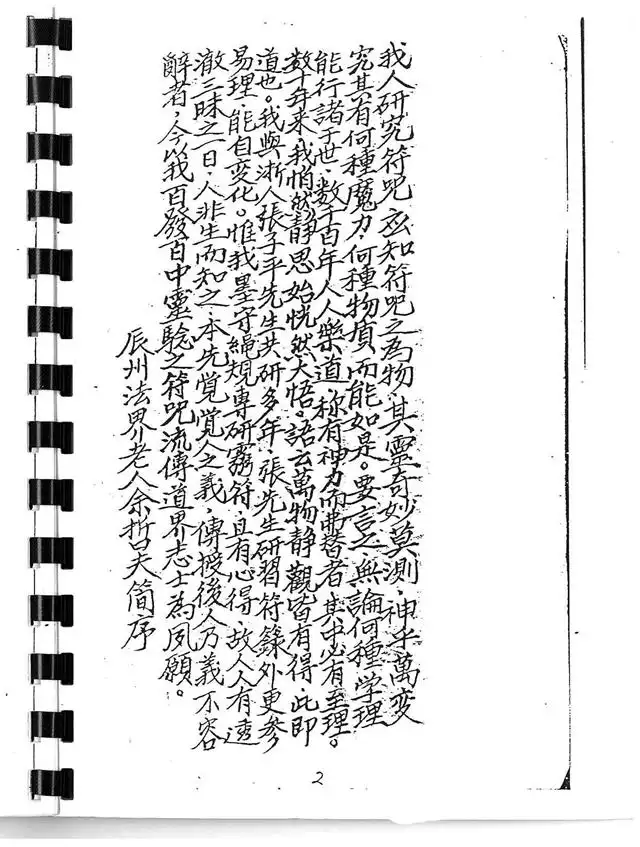 我人研究符咒玄知符咒之為物其靈奇妙莫測神千萬变
究其有何種魔力何種物質而能如是。要言之無論何種学理
能行諸于世数千百年人人樂道称有神力而弗替者其中必有至理。
数十年来我怕然靜思始恍然大悟。語云萬物静觀皆有得此即
道也。我與浙人張子平先生共研多年張先生研習符籙外更参
易理能自变化。惟我墨守繩規專研靈符且有心得故人人有透
澈三昧之一日人非生而知之本先覚覚人之義傳授後人乃義不容
辭者，今以我百發百中靈驗之符咒流傳道界志士為夙願。
辰州法界老人余哲夫简序
2